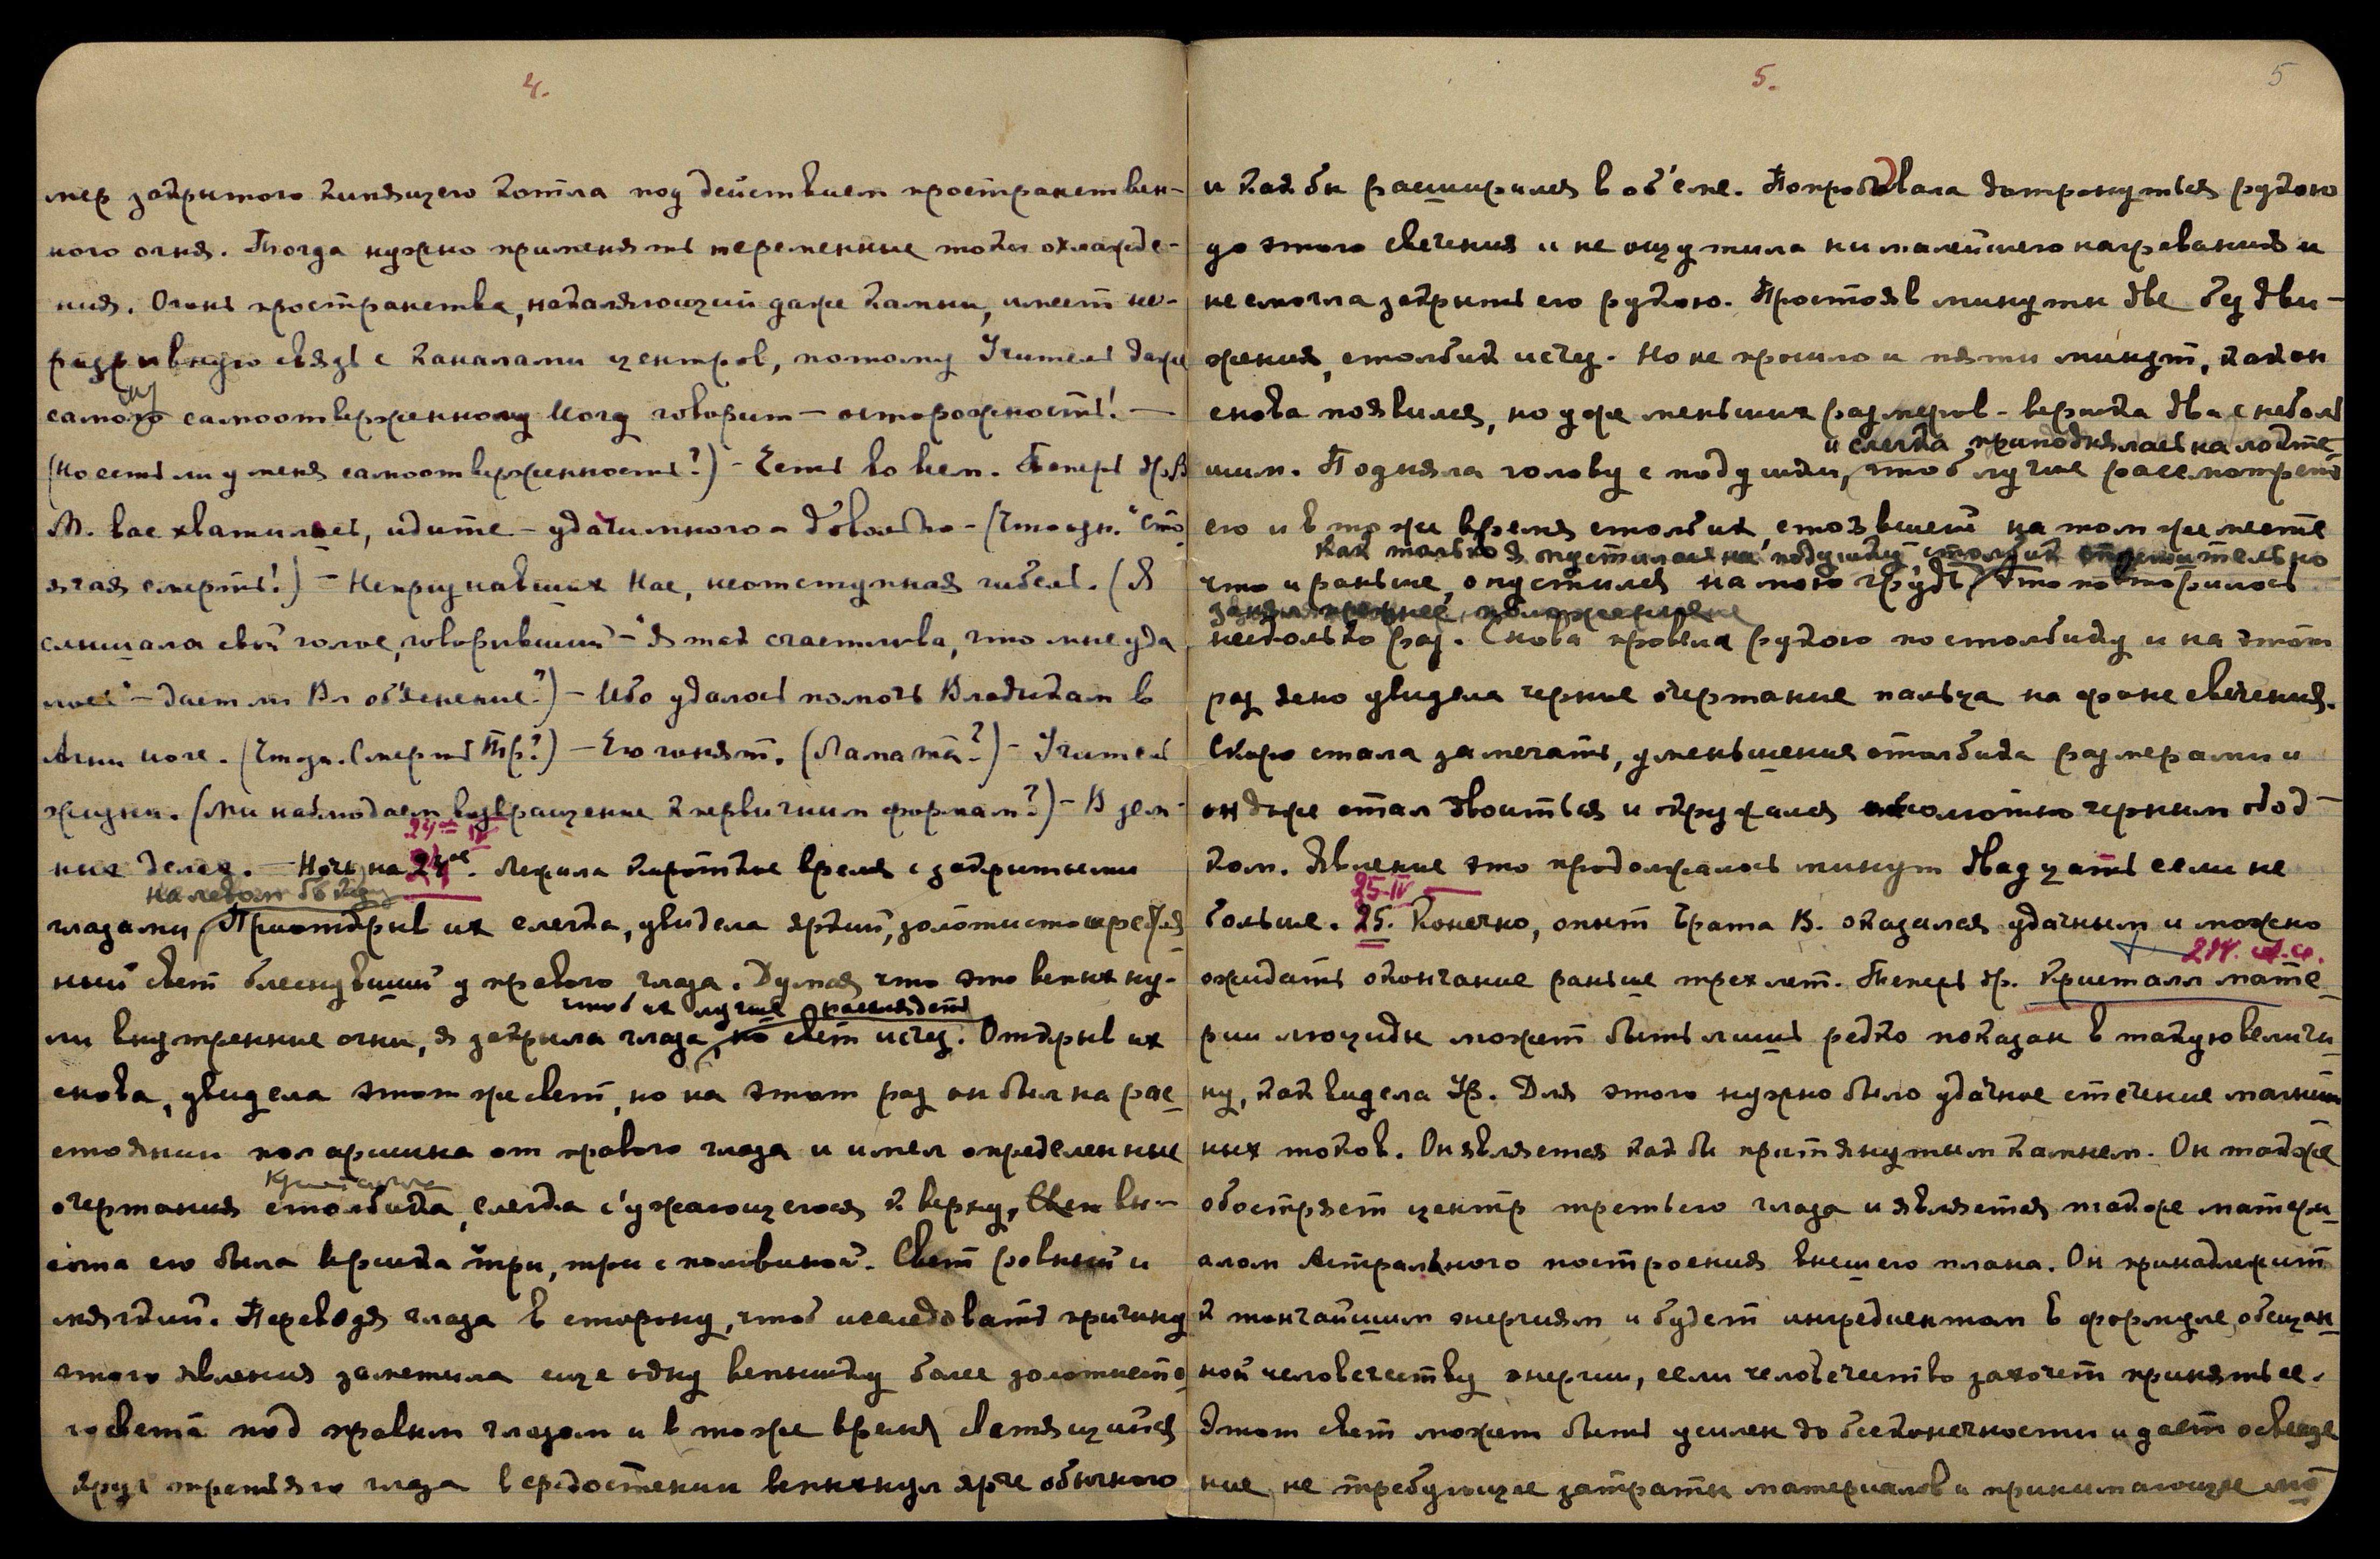 4.
мер закрытого кипящего котла под действием пространствен-
ного огня. Тогда нужно применять переменные токи охлажде-
ния. Огонь пространства, накаляющий даже камни, имеет не-
разрывную связь с каналами центров, потому Учитель даже
самому самоотверженному Йогу говорит — осторожность! —
(Но есть ли у меня самоотверженность?) – Есть во всем. Теперь
М. вас хватились, идите – удачи много – довольно –
ягая смерть!) – Непризнавших Нас, неотступная гибель. (Я
слышала свой голос, говоривший – "Я так счастлива, что мне уда
лось" – дает ли Вл объяснение?) – Ибо удалось помочь Владыкам в
Агни йоге. – Его гонят. – Учитель
жизни. (Мы наблюдаем возвращение к первичным формам?) – В зем-
24 IV
ных делах. — Ночь на 24ое. Лежала короткое время с закрытыми
на левом боку
глазами, Приоткрыв их слегка, увидела яркий, золотисто
ный свет блеснувший у правого глаза. Думая что это вспыхну-
чтоб их лучше разглядеть
ли внутренние огни, я закрыла глаза, но свет исчез. Открыв их
снова, увидела этот же свет, но на этот раз он был на рас-
стоянии пол аршина от правого глаза и имел определенные
Кристалла
очертания столбика, слегка с'ужающегося к верху, вы-
сота его была вершка три, три с половиной. Свет ровный и
мягкий. Переводя глаза в сторону, чтоб исследовать причину
этого явления заметила еще одну вспышку более золотисто-
го света под правым глазом и в тоже время светящийся
круг третьяго глаза в средостении вспыхнул ярче обычного
5.
5
и как бы расширился в об'еме. Попробовала дотронуться рукою
до этого свечения и не ощутила ни малейшего нагревания и
не смогла закрыть его рукою. Простояв минуты две без дви-
жения, столбик исчез. Но не прошло и пяти минут, как он
снова появился, но уже меньших размеров – вершка два с неболь
и слегка приподнялась на локте
шим. Подняла голову с подушки, чтоб лучше рассмотреть
его и в то же время столбик, стоявший на том же месте
как только я опустилась на подушку, столбик
что и раньше, опустился на мою грудь, Это повторилось
занял прежнее положение
несколько раз. Снова провела рукою по столбику и на этот
раз ясно увидела черные очертание пальца на фоне свечения.
Скоро стала замечать, уменьшение столбика размерами и
он даже стал двоиться и окружался черным обод-
ком. Явление это продолжалось минут двадцать если не
25-IV
больше. 25. Конечно, опыт Брата В. оказался удачным и можно
ожидать окончание раньше трех лет. Теперь др. Кристалл мате-
рии люциды может быть лишь редко показан в такую величи-
ну, как видела Ур. Для этого нужно было удачное стечение магнит
ных токов. Он является как бы притянутым камнем. Он также
обостряет центр третьего глаза и является также матери-
алом Астрального построения высшего плана. Он принадлежит
к тончайшим энергиям и будет ингредиентом в формуле, обещан-
ной человечеству энергии, если человечество захочет принять ее.
Этот свет может быть усилен до бесконечности и дает освеще
ние, не требующее затраты материалов и принимающее